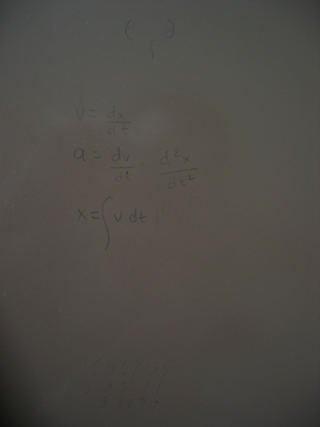 ( )
v = dx/dt
a = dv/dt d²x/dt²
x = ∫ v dt